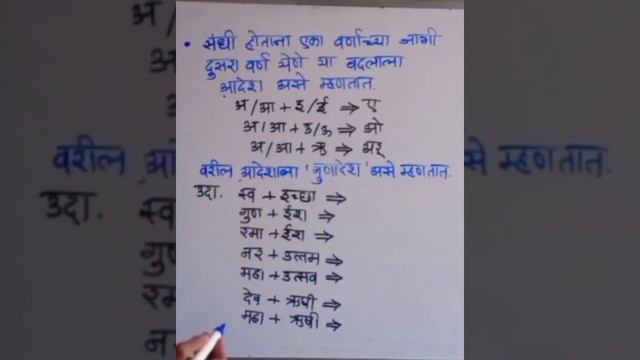 • संधी होताना एका वर्णाच्या जागी
दुसरा वर्ण येणे या बदलाला
आदेश असे म्हणतात.
अ/आ + इ/ई ⇒ ए
अ/आ + उ/ऊ ⇒ ओ
अ/आ + ऋ ⇒ अर्
वरील आदेशाला 'गुणादेश' असे म्हणतात.
उदा. स्व + इच्छा ⇒
गुण + ईश ⇒
रमा + ईश ⇒
नर + उत्तम ⇒
महा + उत्सव ⇒
देव + ऋषी ⇒
महा + ऋषी ⇒